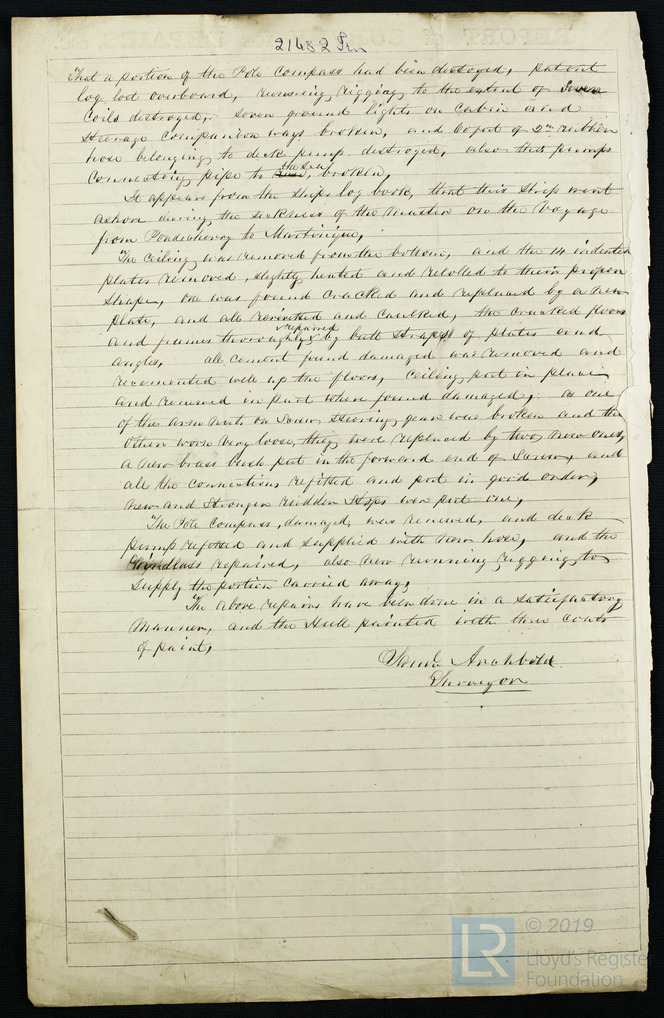 21482 Irn
That a portion of the Pole Compass had been destroyed, patent
log lost overboard, running rigging to the extent of Seven
Coils destroyed, seven ground lights on Cabin and
Steerage Companion ways broken, and 60 feet of 2in rubber
hose belonging to deck pump destroyed, also this pumps
Connecting pipe to the Sea, broken,
It appears from the ships log book, that this Ship went
ashore during the sickness of the Master on the Voyage
from Pondicherry to Martinique,
The Ceiling was removed from the bottom, and the 14 indented
plates removed, slightly heated and rerolled to their proper
shape, one was found cracked and replaced by a new
plate, and all revited and Caulked, the cracked floors
and frames thoroughly repaired by butt straps of plates and
angles, all cement found damaged was removed and
recemented well up the floors, Ceiling put in place
and renewed in part where found damaged, as one
of the arm nuts on Screw Steering gear was broken and the
other worn very loose, they were replaced by two new ones,
a new brass bush put in the forward end of Screw, and
all the connections refitted and put in good order,
new and Stronger rudder Stops were put one,
The Pole Compass, damaged, was renewed, and deck
pump refitted and supplied with new hose, and the
Windlass repaired, also new running rigging to
supply the portion carried away,
The above repairs have been done in a satisfactory
Manner, and the Hull painted with three coats
of paint,
Archbold
Surveyor
LR
© 2019
Lloyd's Register
Foundation